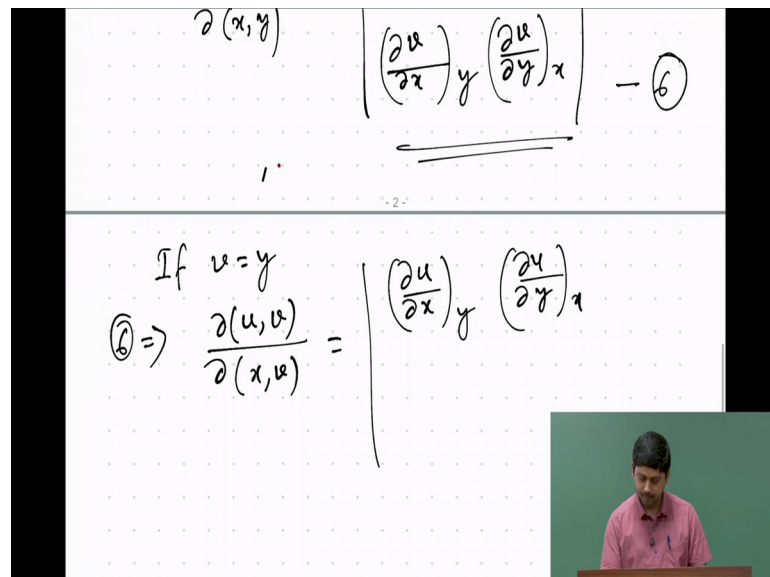 ∂(x,y)
|(∂v/∂x)_y (∂v/∂y)_x| — ⑥
- 2 -
If v = y
⑥ ⇒ ∂(u,v)/∂(x,v) = | (∂u/∂x)_y (∂u/∂y)_x